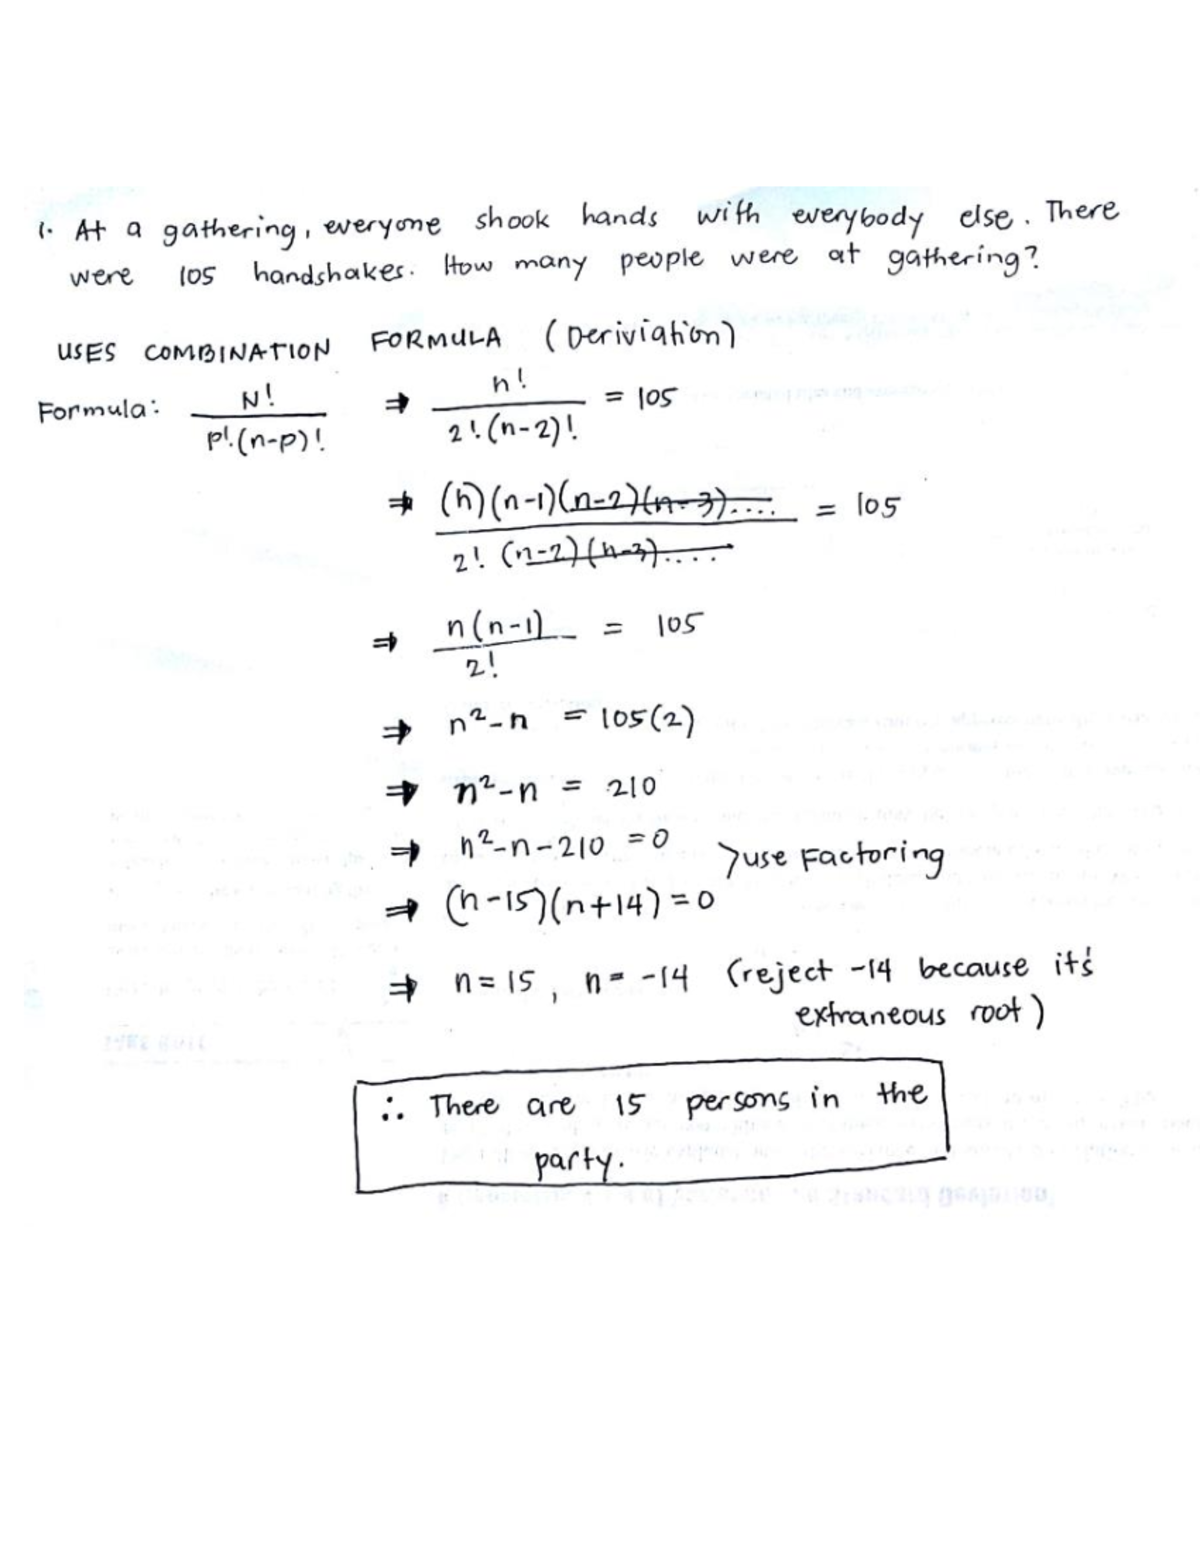 1. At a gathering, everyone shook hands with everybody else. There
were 105 handshakes. How many people were at gathering?
USES COMBINATION FORMULA (Deriviation)
Formula: N! / p!.(n-p)! ⇒ n! / 2!.(n-2)! = 105
⇒ (n)(n-1)(n-2)(n-3).... / 2! (n-2)(n-3).... = 105
⇒ n(n-1) / 2! = 105
⇒ n²-n = 105(2)
⇒ n²-n = 210
⇒ n²-n-210 = 0
>use Factoring
⇒ (n-15)(n+14) = 0
⇒ n = 15, n = -14 (reject -14 because it's
extraneous root)
∴ There are 15 persons in the
party.